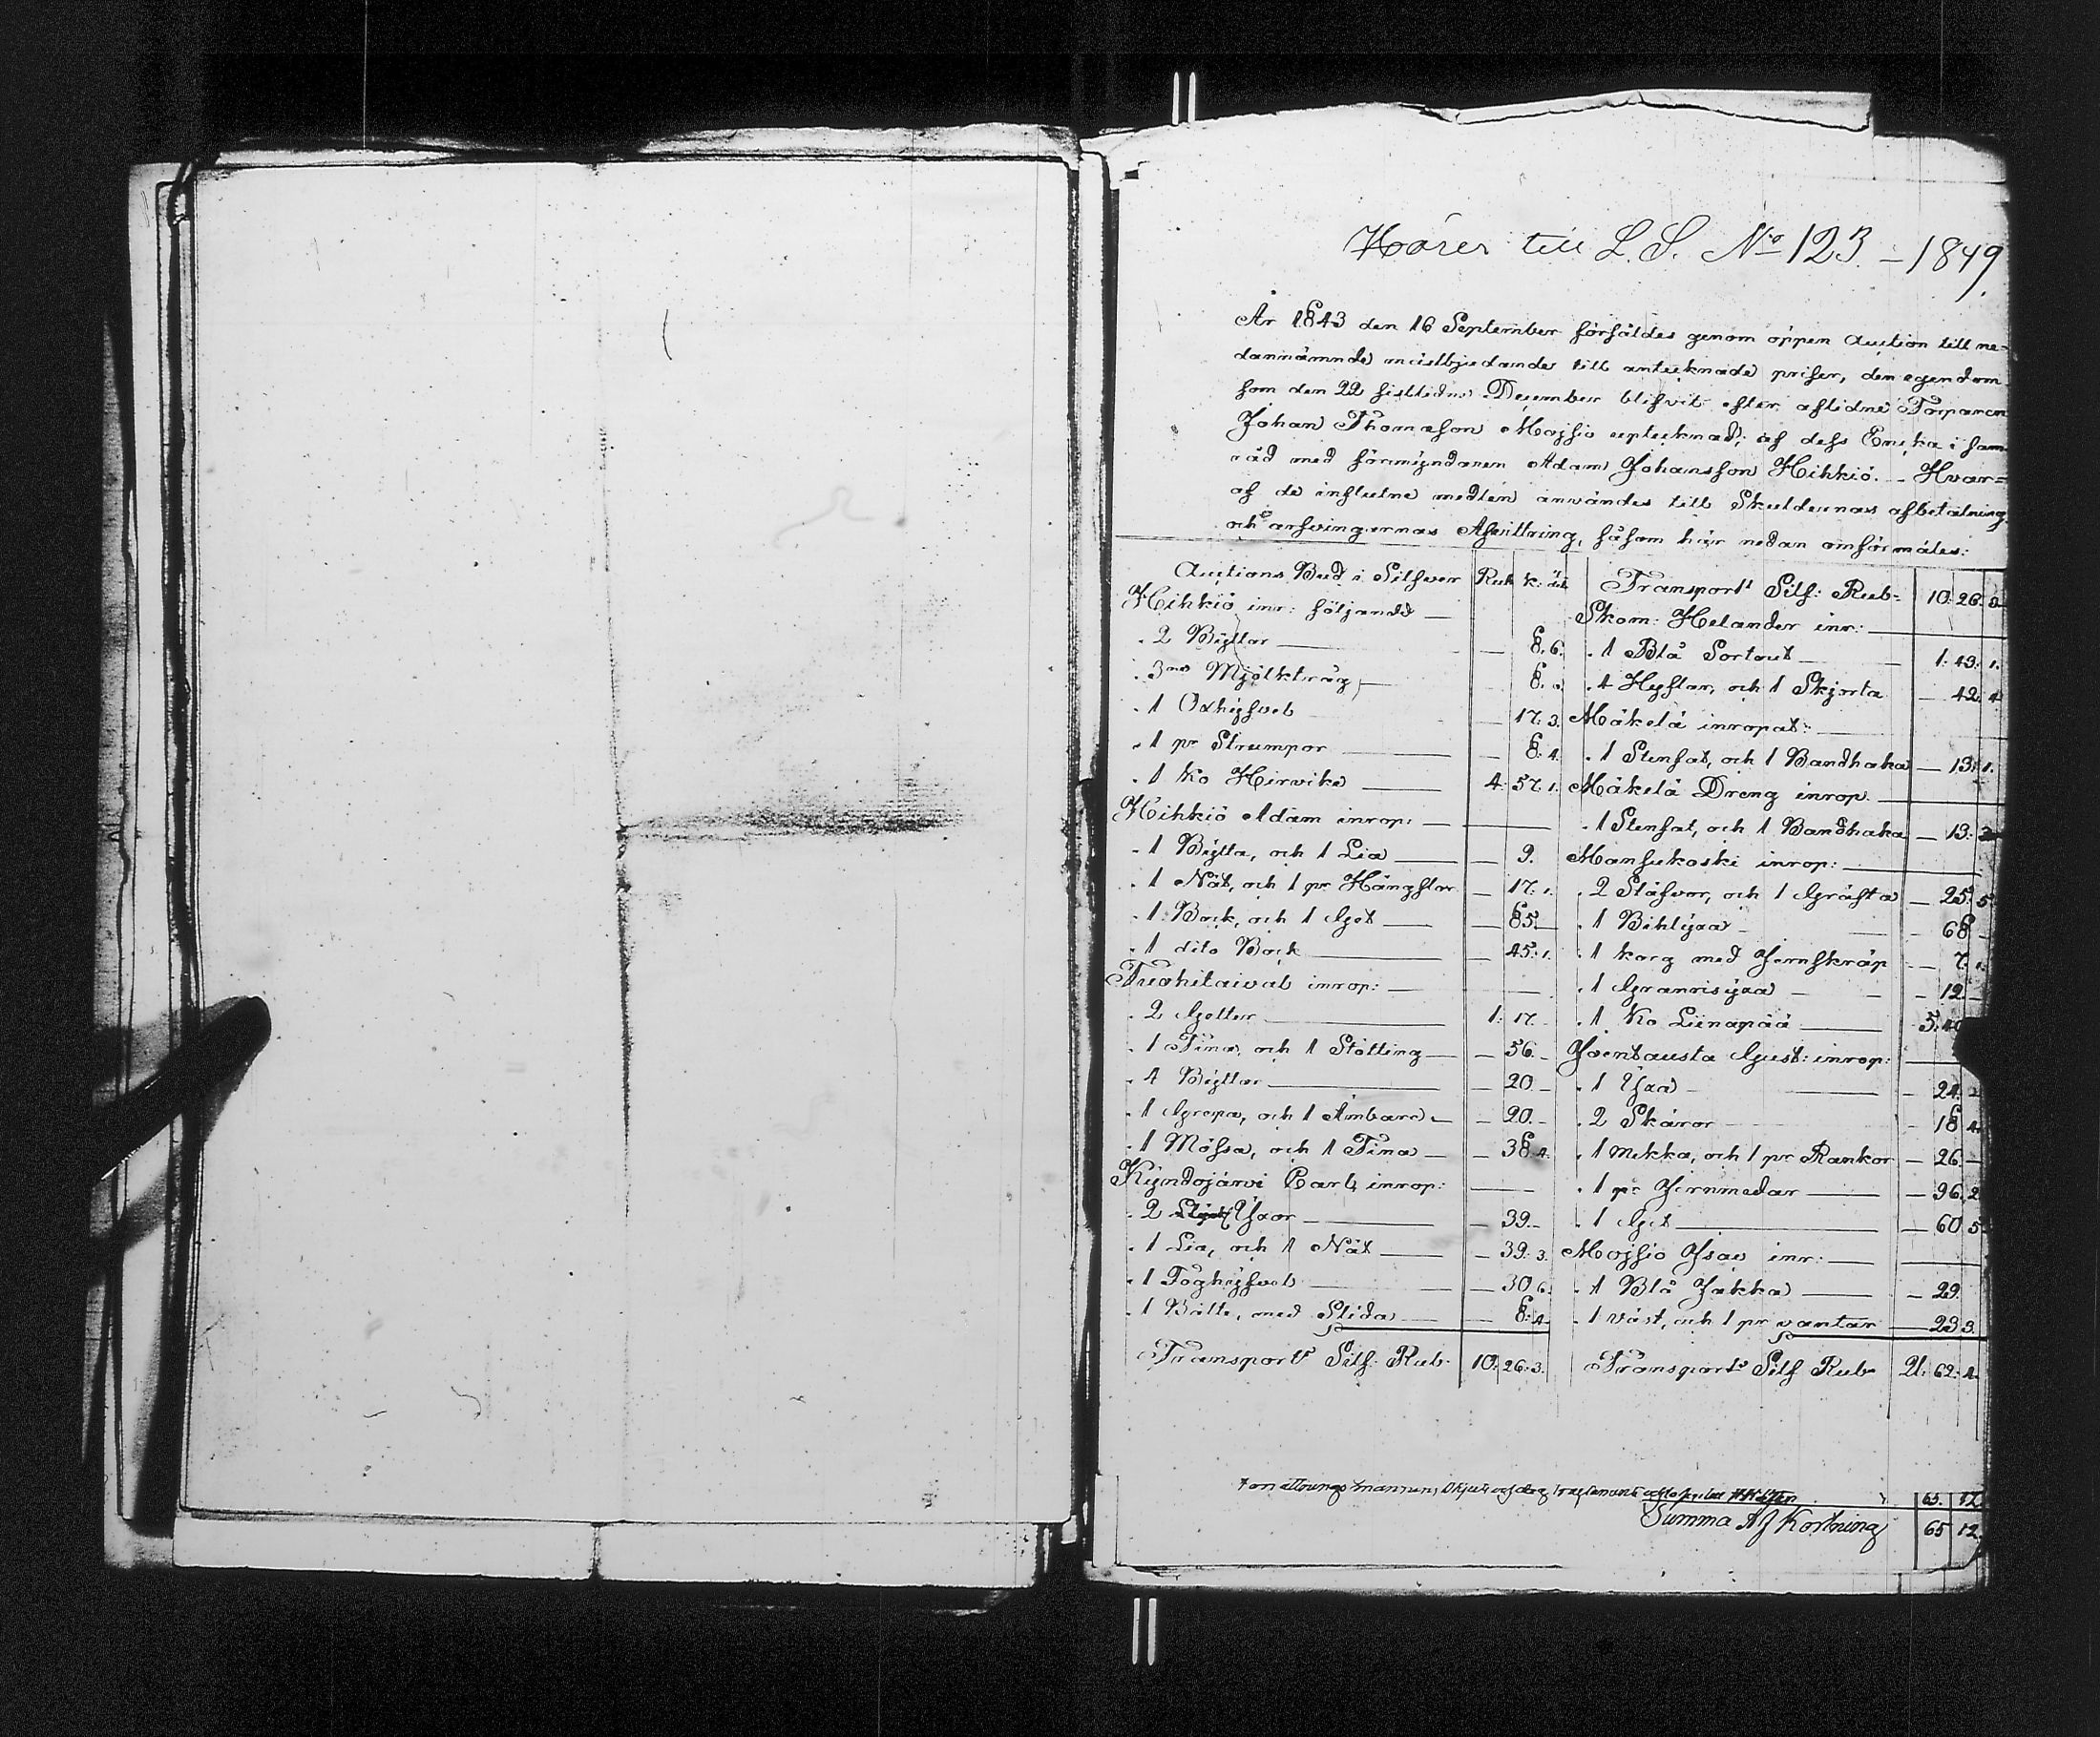 Hörer till L.S. No 123. – 1849.
År 1843 den 16 September försåldes genom öppen Auction till ne-
dannämnde mästbjudande till antecknade priser, den egendom
som den 22 sistlidne December blifvit efter aflidne Torparen
Johan Thomasson Mojsio uptecknad; af dess Enka i sam-
råd med förmyndaren Adam Johansson Hihkiö. – Hvar=
af de influtne medlen användes till Skuldernas afbetalning
och arfvingarnas Afvittring, såsom här nedan omförmäles:
Auctions Bud i Silfver Rub k:
Hihkiö inr: följande —
. 2 Byttor — 8. 6.
. 3ne Mjölktråg — 8.
. 1 Oxhysvel — 17. 3.
. 1 pr Strumpor — 8. 4.
. 1 Ko Hirvike — 4. 57. 1.
Hihkiö Adam inrop: —
. 1 Bytta, och 1 Lia — 9.
. 1 Nät, och 1 pr Hängslor — 17. 1.
. 1 Bock, och 1 Get — 85.
. 1 dito Bock — 45. 1.
Tuohitaival inrop: —
. 2 Getter — 1. 17.
. 1 Tina, och 1 Stötting — 56. -
. 4 Byttor — 20 -
. 1 Grepa, och 1 Ämbare — 20. -
. 1 Mössa, och 1 Tina — 38. 4.
Kyndöjärvi Carl, inrop: —
. 2 Yxor — 39. -
. 1 Lia, och 1 Nät — 39. 3.
. 1 — 30. 6.
. 1 med Slida — 8. 4.
Transport Silf: Rub. 10. 26. 3.
Transport Silf: Rub: 10. 26. 3
Skom: Helander inr: —
. 1 Blå Sortout — 1. 43. 1.
. 4 och 1 Skjorta — 42. 4
Mäkelä inropat: —
. 1 Stenfat, och 1 Bandhaka — 13. 1.
Mäkelä Dreng inrop. —
. 1 Stenfat, och 1 Bandhaka — 13.
Mansukoski inrop: —
. 2 och 1 Gräfta — 25. 5
. 1 Bihlyxa — 68 -
. 1 korg med Jernskråp — 7.
. 1 Granrisyxa — 12 -
. 1 Ko Liinapää — 5. 40
Joentausta Gust: inrop: —
. 1 Yxa — 24.
. 2 Skäror — 18 4.
. 1 Mekka, och 1 pr Rankor — 26 —
. 1 pr Jernmedar — 96. 2
. 1 Get — 60 5
Mojsio Isac inr: —
. 1 Blå Jakka — 29.
. 1 väst, och 1 pr vantar — 23 3.
Transport Silf Rub 21. 62. 4.
65. 12
Summa Af Kortning 65 12